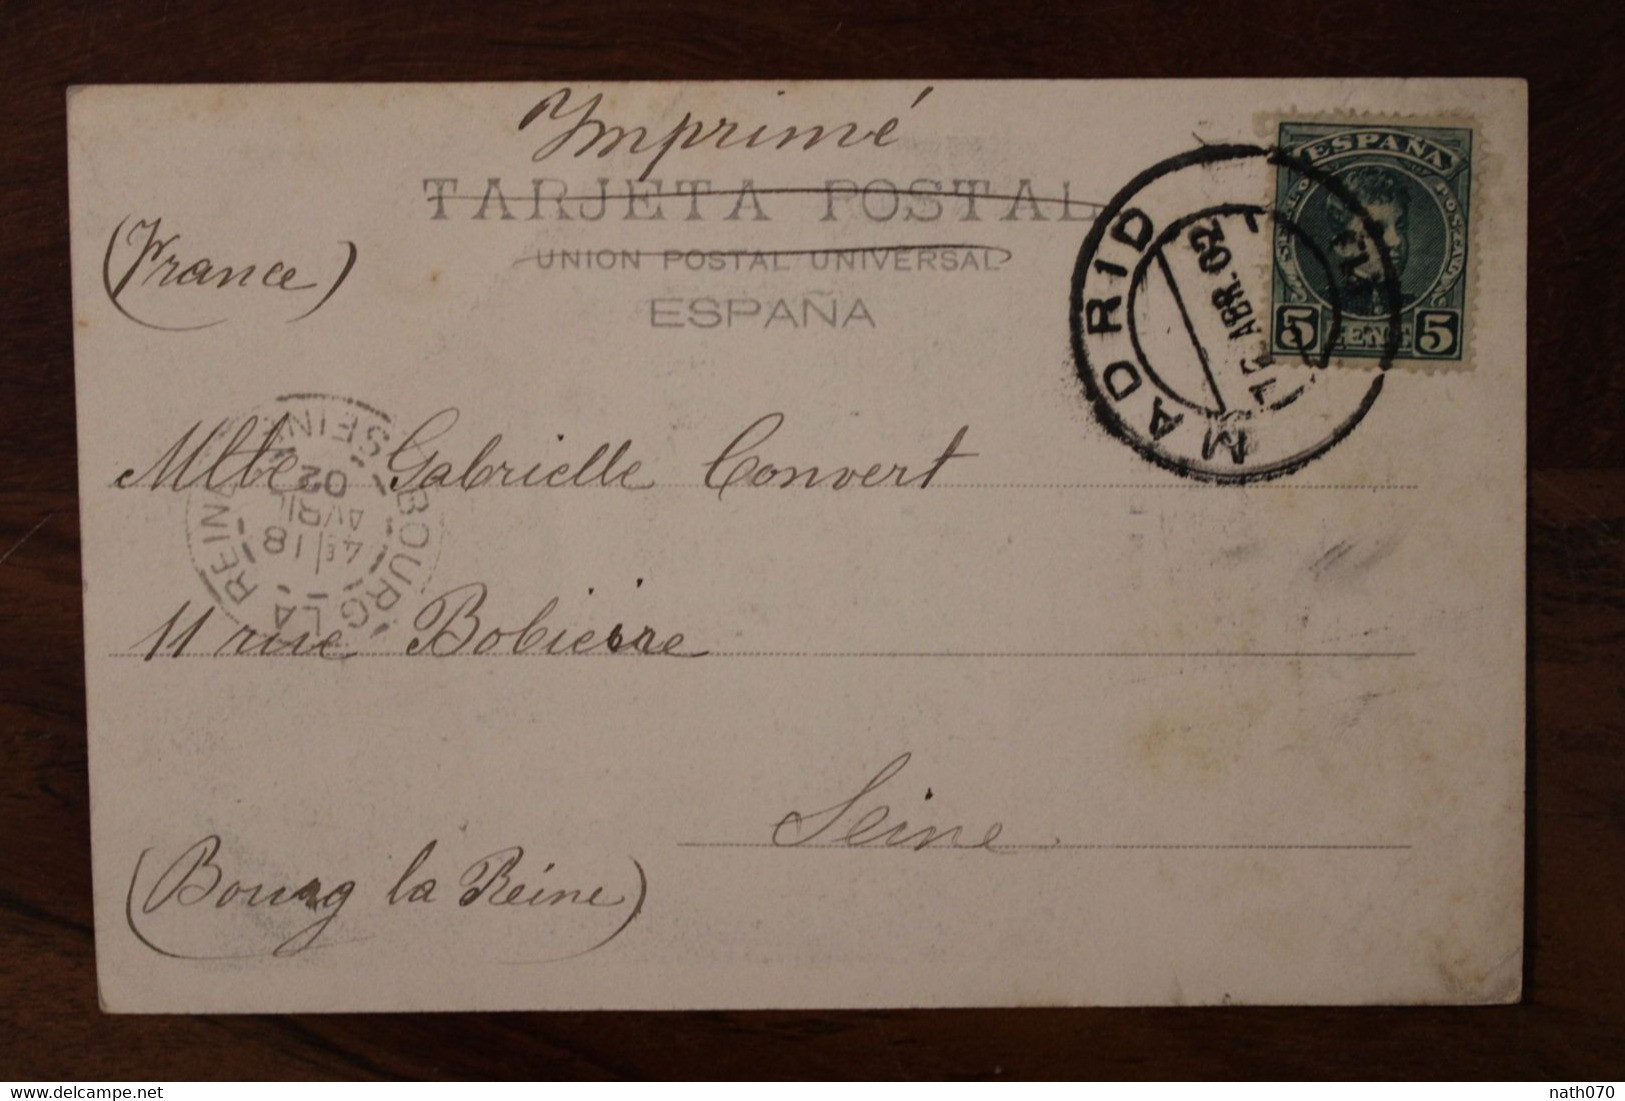 Imprimé
TARJETA POSTAL
UNION POSTAL UNIVERSAL
ESPAÑA
(France)
MADRID
ABR. 02
ESPAÑA
5 CENT 5
Mlle Gabrielle Convert
BOURG LA REINE
SEINE
4E 18
AVRIL
02
11 rue Bobierre
Seine
(Bourg la Reine)
delcampe.net
nath070